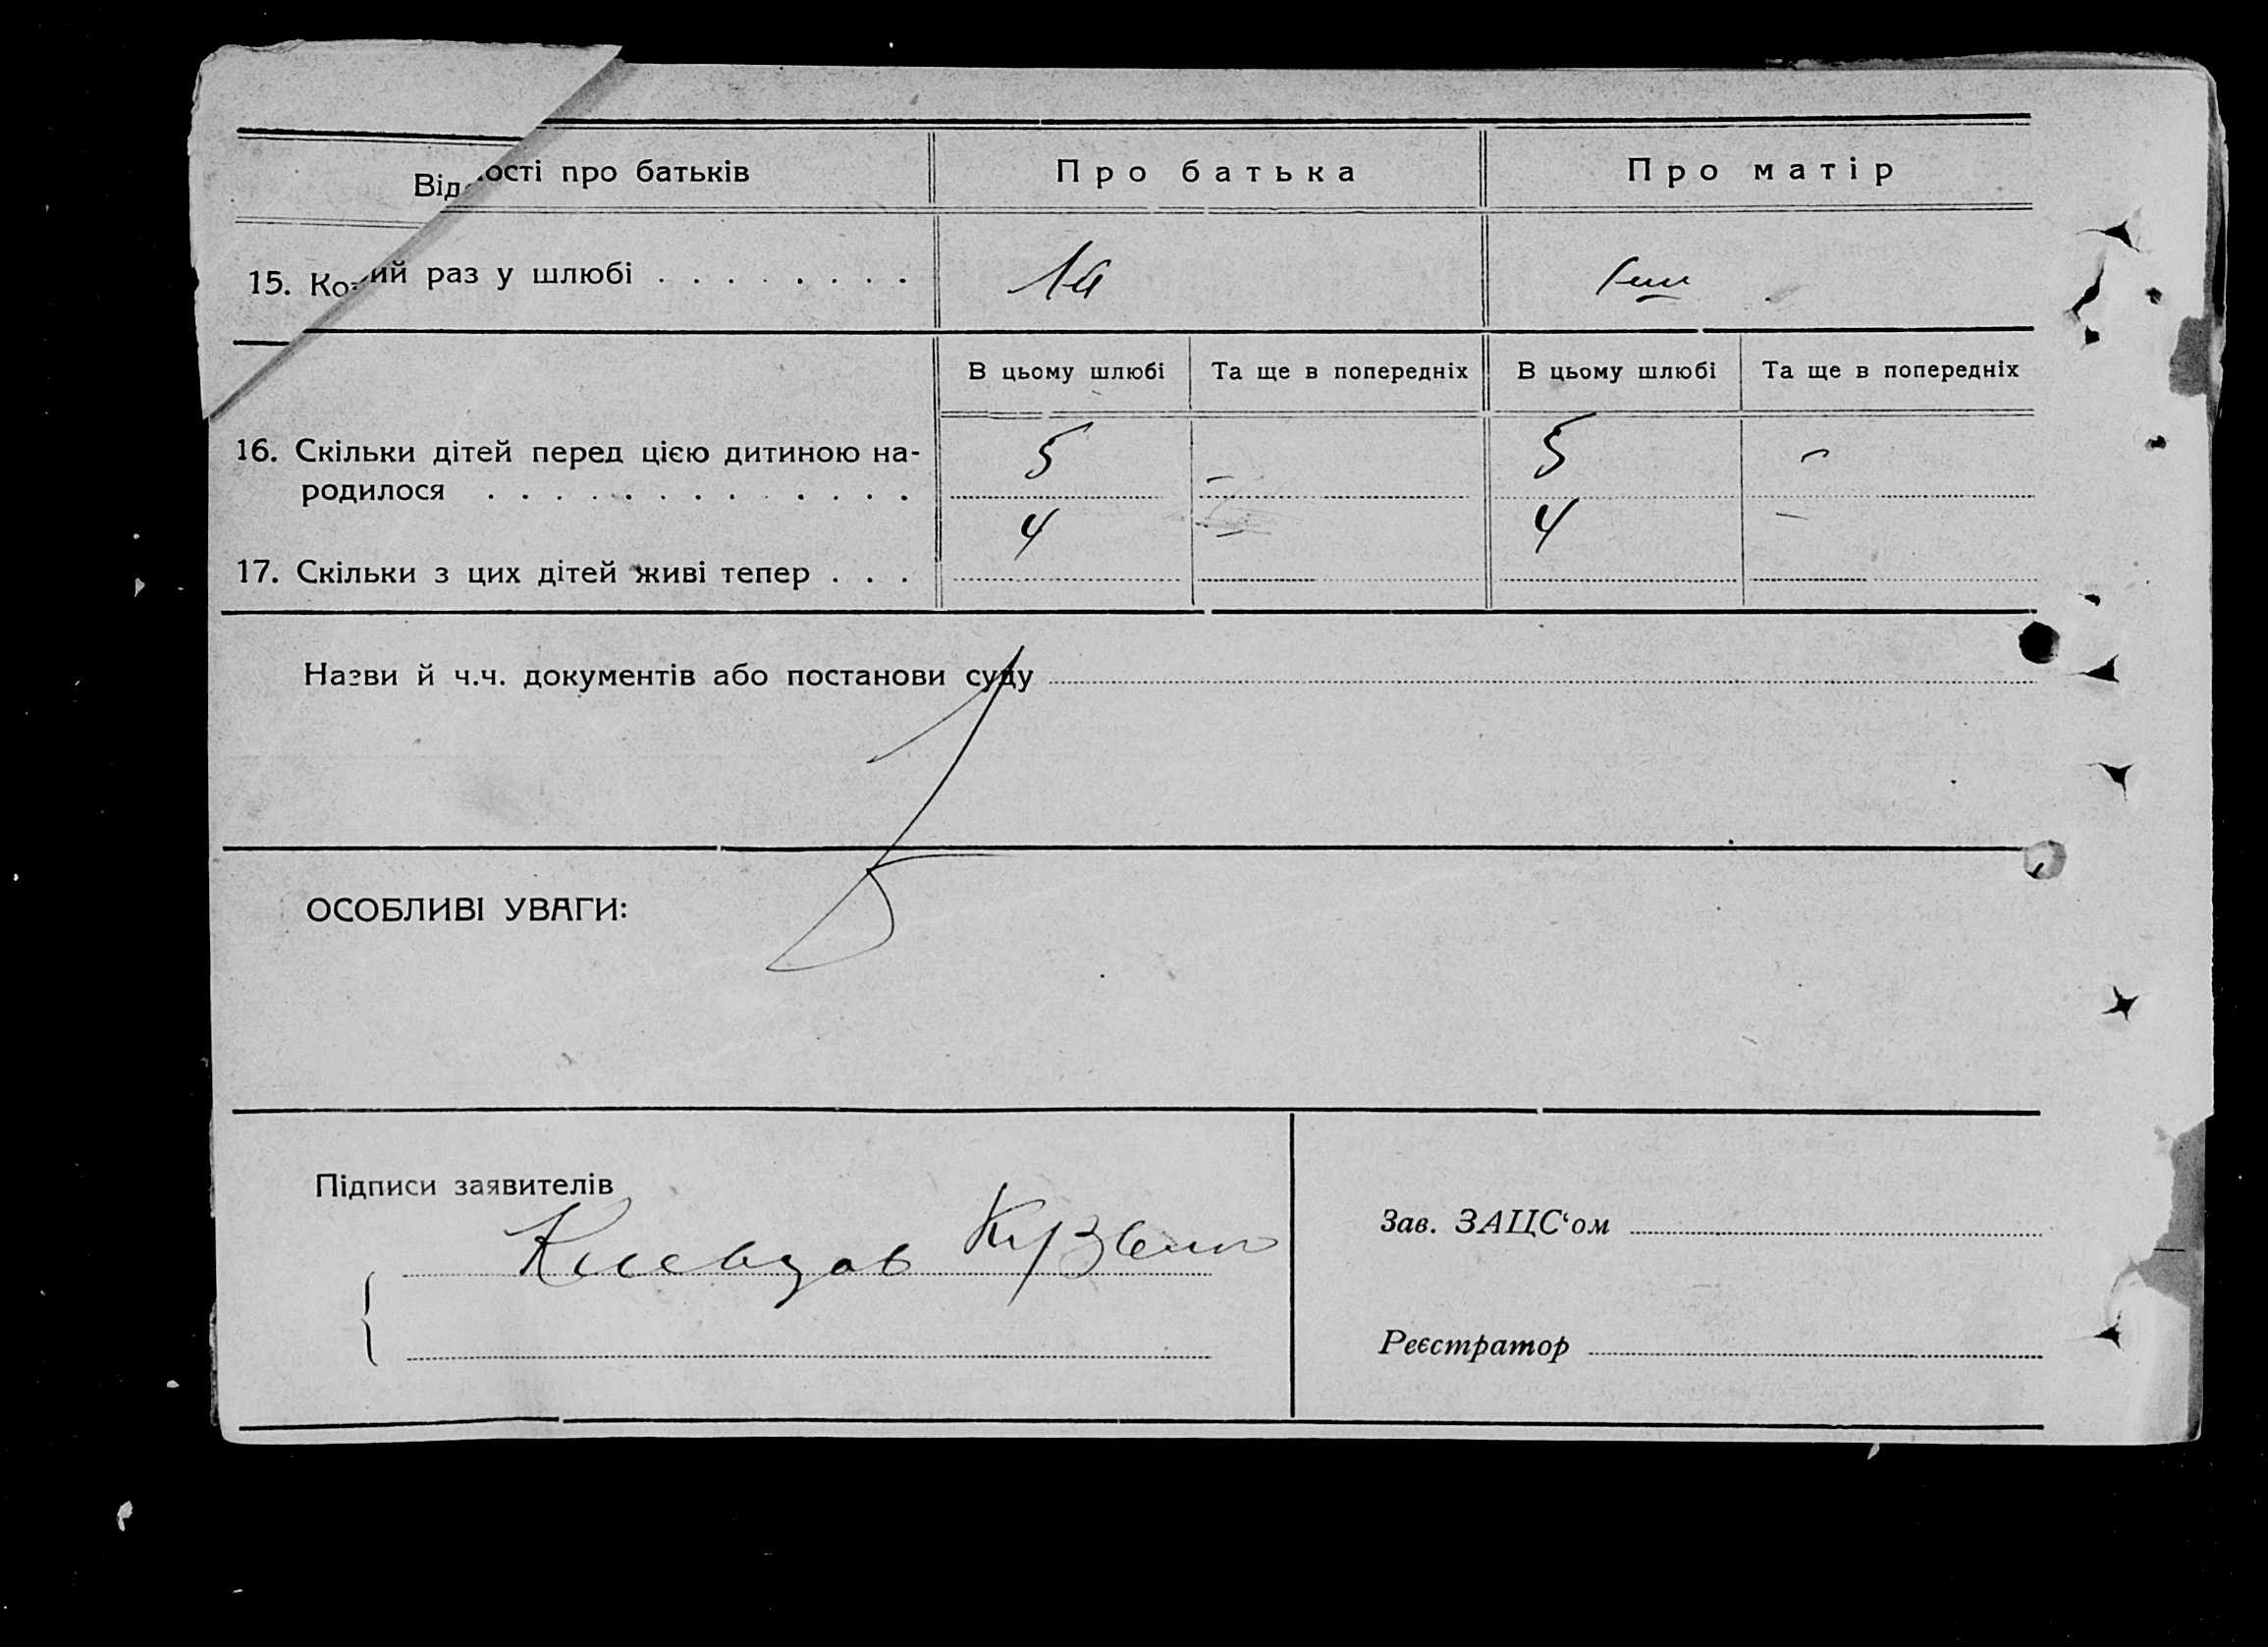 Відомості про батьків Про батька Про матір
15. Котрий раз у шлюбі . . . . . . . . 1й
В цьому шлюбі Та ще в попередніх В цьому шлюбі Та ще в попередніх
16. Скільки дітей перед цією дитиною на- 5 – 5 –
родилося . . . . . . . . . . . . .
17. Скільки з цих дітей живі тепер . . . 4 – 4 –
Назви й ч.ч. документів або постанови суду
ОСОБЛИВІ УВАГИ:
Підписи заявителів
Зав. ЗАЦС‘ом
Реєстратор